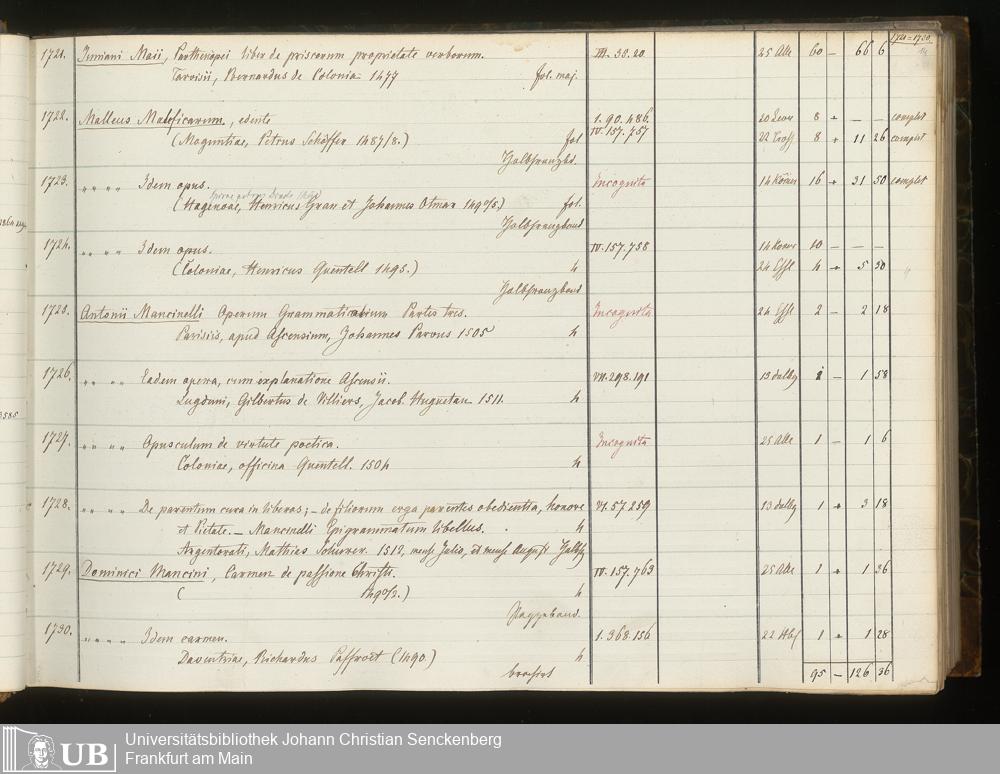 1721=1730.
1721. Juniani Maii, Parthenopei liber de priscorum proprietate verborum. III. 30.20 25 Alk 60 — 66 6
Tarvisii, Bernardus de Colonia 1477 fol. maj.
1722. Malleus Maleficarum, edente 1.90.486. 20 8 + — — complet
(Moguntiae, Petrus Schöffer 1487/8.) fol IV.157.757 22 8 + 11 26 complet
Halbfranzbd.
1723. " " " " Idem opus. Incognita 14 16 + 31 50 complet
(Hagenoae, Henricus Gran et Johannes Otmar 1490/5.) fol.
Halbfranzband
1724. " " " " Idem opus. IV.157.758 14 10 — — —
(Coloniae, Henricus Quentell 1495.) 4 24 4 + 5 30
Halbfranzband
1725. Antonii Mancinelli Operum Grammaticorum Partes tres. Incognita 24 2 — 2 18
Parisiis, apud Ascensium, Johannes Parvus 1505 4
1726. " " " " Eadem opera, cum explanatione Ascensii. VII.298.191 13 — 1 58
Lugduni, Gilbertus de Villiers, Jacob. Huguetan 1511. 4
1727. " " " " Opusculum de virtute poetica. Incognita 25 Alk 1 — 1 6
Coloniae, officina Quentell. 1504 4
1728. " " " " De parentum cura in liberos; — de filiorum erga parentes obedientia, honore VI.57.259 13 1 + 3 18
et Pietate. — Mancinelli Epigrammatum libellus. 4
Argentorati, Mathias Schurer. 1512, mense Julio, et mense August
1729. Dominici Mancini, Carmen de passione Christi. IV.157.763 25 Alk 1 + 1 36
( 1490/2.) 4
Pappeband.
1730. " " " " Idem carmen. 1.368.156 22 1 + 1 28
Daventriae, Richardus Paffroet (1490.) 4
brochirt 95 — 126 36
UB
Universitätsbibliothek Johann Christian Senckenberg
Frankfurt am Main